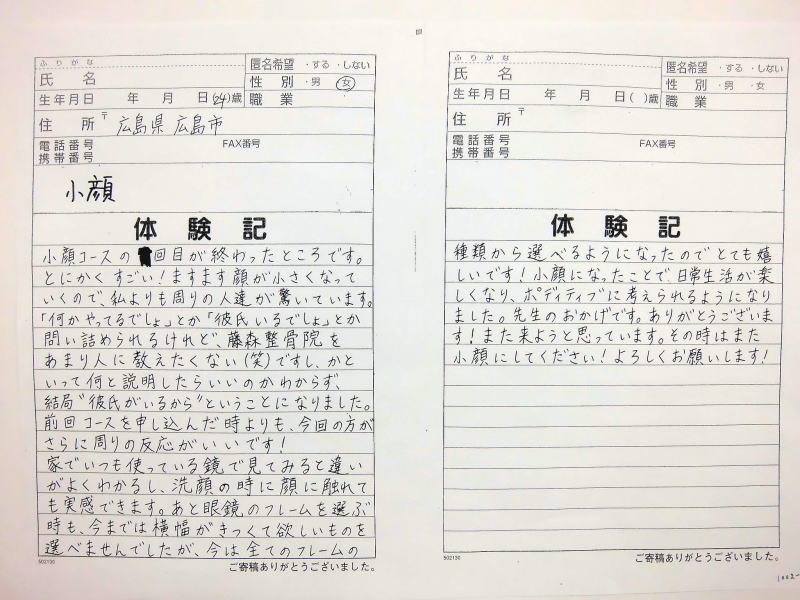 ふりがな
氏 名
匿名希望 ・する ・しない
性 別 ・男 ・女
生年月日 年 月 日(24)歳
職 業
住 所 〒 広島県 広島市
電話番号 FAX番号
携帯番号
小顔
体験記
小顔コースの 回目が終わったところです。
とにかくすごい!ますます顔が小さくなって
いくので、私よりも周りの人達が驚いています。
「何かやってるでしょ」とか「彼氏いるでしょ」とか
問い詰められるけれど、藤森整骨院を
あまり人に教えたくない(笑)ですし、かと
いって何と説明したらいいのかわからず、
結局"彼氏がいるから"ということになりました。
前回コースを申し込んだ時よりも、今回の方が
さらに周りの反応がいいです!
家でいつも使っている鏡で見てみると違い
がよくわかるし、洗顔の時に顔に触れて
も実感できます。あと眼鏡のフレームを選ぶ
時も、今までは横幅がきっくて欲しいものを
選べませんでしたが、今は全てのフレームの
502130
ご寄稿ありがとうございました。
ふりがな
氏 名
匿名希望 ・する ・しない
性 別 ・男 ・女
生年月日 年 月 日( )歳
職 業
住 所 〒
電話番号 FAX番号
携帯番号
体験記
種類から選べるようになったのでとても嬉
しいです!小顔になったことで、日常生活が楽
しくなり、ポディティブに考えられるようになり
ました。先生のおかげです。ありがとうございま
す!また来ようと思っています。その時はまた
小顔にしてください!よろしくお願いします!
502130
ご寄稿ありがとうございました。